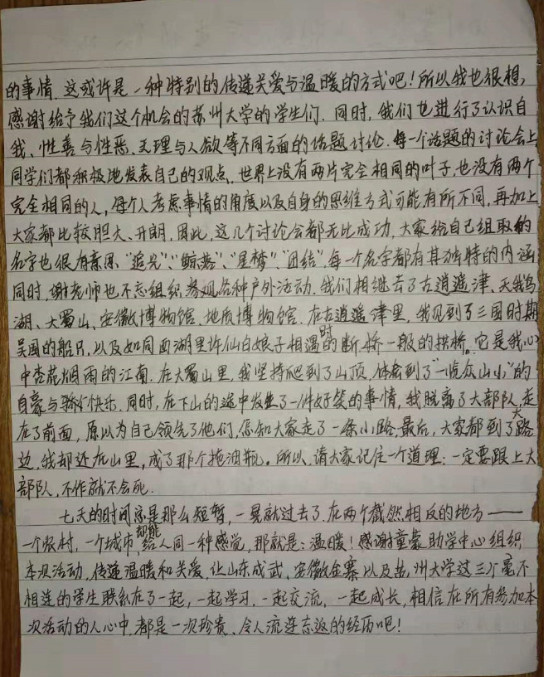 的事情。这或许是一种特别的传递关爱与温暖的方式吧！所以我也很想，
感谢给予我们这个机会的苏州大学的学生们。同时，我们也进行了认识自
我、性善与性恶、天理与人欲等不同方面的话题讨论。每一个话题的讨论会上
同学们都积极地发表自己的观点。世界上没有两片完全相同的叶子，也没有两个
完全相同的人，每个人考虑事情的角度以及自身的思维方式可能有所不同，再加上
大家都比较胆大、开朗，因此，这几个讨论会都无比成功。大家给自己组取的
名字也很有意思，“追光”、“鲸落”、“星梦”、“团结”，每一个名字都有其独特的内涵
同时，谢老师也不忘组织参观各种户外活动。我们相继去了古逍遥津、天鹅
湖、大蜀山、安徽博物馆、地质博物馆。在古逍遥津里，我见到了三国时期
吴国的船只，以及如同西湖里许仙白娘子相遇时的断桥一般的拱桥。它是我心
中杏花烟雨的江南。在大蜀山里，我坚持爬到了山顶，体会到了“一览众山小”的
自豪与骄傲快乐。同时，在下山的途中发生了一件好笑的事情，我脱离了大部队，走
在了前面，原以为自己领先了他们，怎知大家走了一条小路，最后，大家都到了大路
边，我却还在山里，成了那个拖油瓶，所以，请大家记住一个道理：一定要跟上大
部队，不作就不会死。
七天的时间总是那么短暂，一晃就过去了。在两个截然相反的地方——
一个农村，一个城市，却能给人同一种感觉，那就是：温暖！感谢童蒙助学中心组织
本次活动，传递温暖和关爱，让山东成武、安徽金寨以及苏州大学这三个毫不
相连的学生联系在了一起，一起学习，一起交流，一起成长，相信在所有参加本
次活动的人心中，都是一次珍贵、令人流连忘返的经历吧！